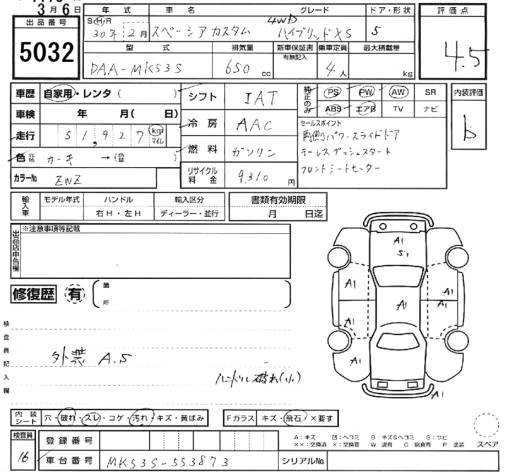 3月6日
出品番号
5032
年式 車名 グレード ドア・形状
S(H)R 30年 2月 スペーシアカスタム 4WD ハイブリッドXS 5
評価点
4.5
型式 排気量 新車保証書 乗車定員 最大積載量
有無記入
DAA-MK53S 650 cc 4 人 kg
車歴 自家用・レンタ( )
車検 年 月(日)
走行 51,927 km マイル
色 →
カラーNo ZNZ
シフト IAT
冷房 AAC
燃料 ガソリン
リサイクル料金 9,310 円
純正のみ PS PW AW SR
ABS エアB TV ナビ
セールスポイント
両側パワースライドドア
キーレスプッシュスタート
フロントシートヒーター
内装評価
b
輸入車 モデル年式 ハンドル 輸入区分 書類有効期限
右H・左H ディーラー・並行 月 日迄
出品店申告欄
※注意事項等記載
修復歴 有
箇所
検査員記入欄
外装 A.5
ハンドル破れ(小)
A1
51
A1 A1
A1 A1 A1
A1
内装シート 穴・破れ・スレ・コゲ・汚れ・キズ・黄ばみ Fガラス キズ・飛石・×要す
検査員
16
登録番号
車台番号 MK53S-553873 シリアルNo
スペア